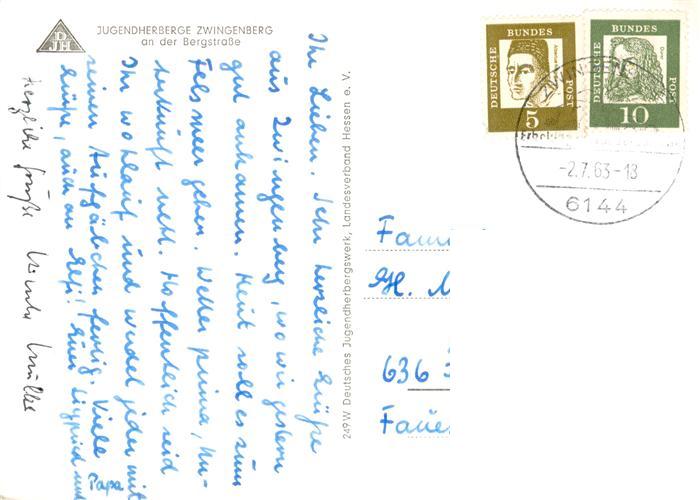 JUGENDHERBERGE ZWINGENBERG
an der Bergstraße
DJH
Ihr Lieben. Sehr herzliche Grüße
aus Zwingenberg, wo wir gestern
gut ankamen. Heut soll es zum
Felsmeer gehen. Wetter prima, Un-
terkunft nett. Hoffentlich seid
Ihr wohlauf und werdet jeder mit
seinen Aufgäbchen fertig. Viele
Grüße, auch an Refi! Euer Sigfried und
Papa
Herzliche Grüße
249W Deutsches Jugendherbergswerk, Landesverband Hessen e. V.
DEUTSCHE BUNDES POST
5
DEUTSCHE BUNDES POST
Dürer
10
ZWINGEN
-2.7.63-18
6144
Fam
H.
636
Faue